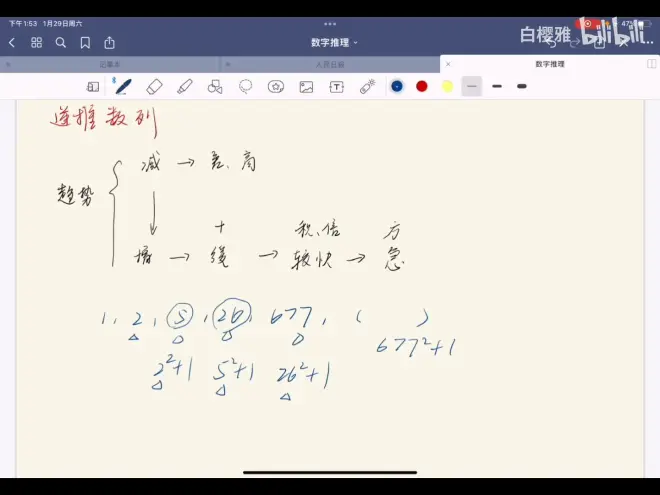 下午1:53 1月29日周六
47%
白樱雅 bilibili
数字推理
记事本
人民日报
数字推理
递推数列
减 → 差、商
趋势
+ 积、倍 方
增 → 缓 → 较快 → 急
1, 2, 5, 26, 677, ( )
677²+1
2²+1 5²+1 26²+1